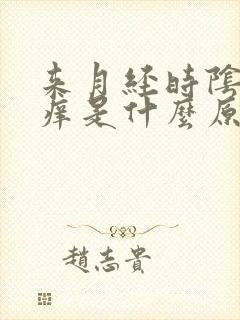 来月经時陰
痒是什麼原
趙志貴